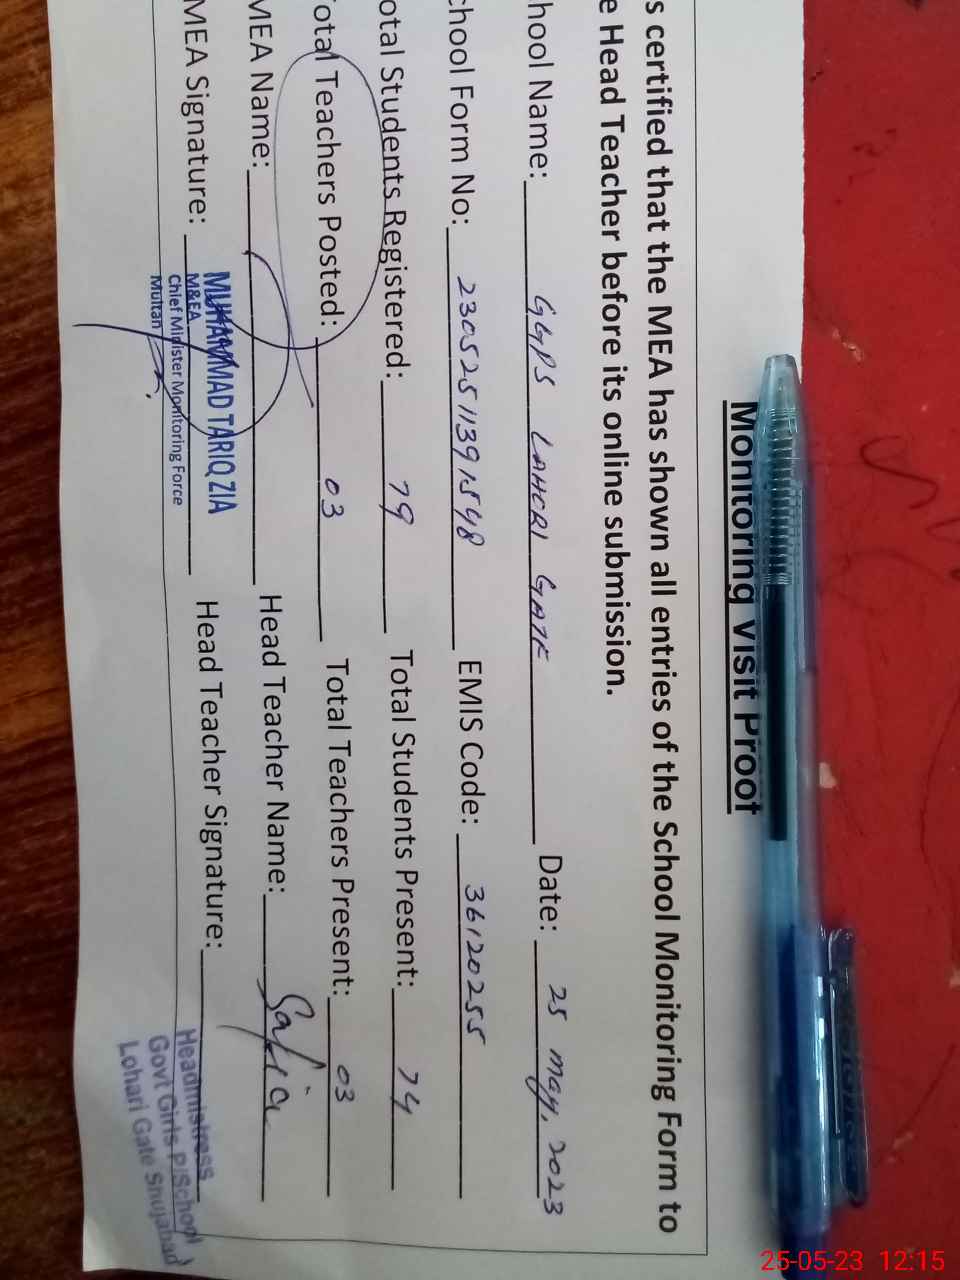 Monitoring Visit Proof
s certified that the MEA has shown all entries of the School Monitoring Form to
e Head Teacher before its online submission.
hool Name: GGPS LAHORI GATE Date: 25 May, 2023
chool Form No: 23052511391548 EMIS Code: 36120255
otal Students Registered: 79 Total Students Present: 74
otal Teachers Posted: 03 Total Teachers Present: 03
MEA Name: Head Teacher Name: Safia
MEA Signature: Head Teacher Signature:
MUHAMMAD TARIQ ZIA
M&EA
Chief Minister Monitoring Force
Multan
Headmistress
Govt Girls P/School
Lohari Gate Shujabad
25-05-23 12:15